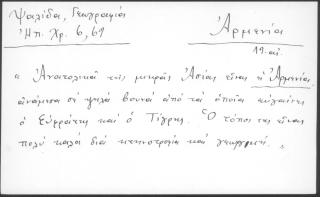 Ψαλίδα, Γεωγραφία
Ἠπ. Χρ. 6, 61
Ἀρμενία
19. αἰ.
« Ἀνατολικά τῆς μικρᾶς Ἀσίας εἶναι ἡ Ἀρμενία,
ἀνάμεσα σέ ψηλά βουνά ἀπό τά ὁποῖα εὐγαίνει
ὁ Εὐφράτης καί ὁ Τίγρης. Ὁ τόπος της εἶναι
πολύ καλός διά κτηνοτροφία καί γεωργική. »